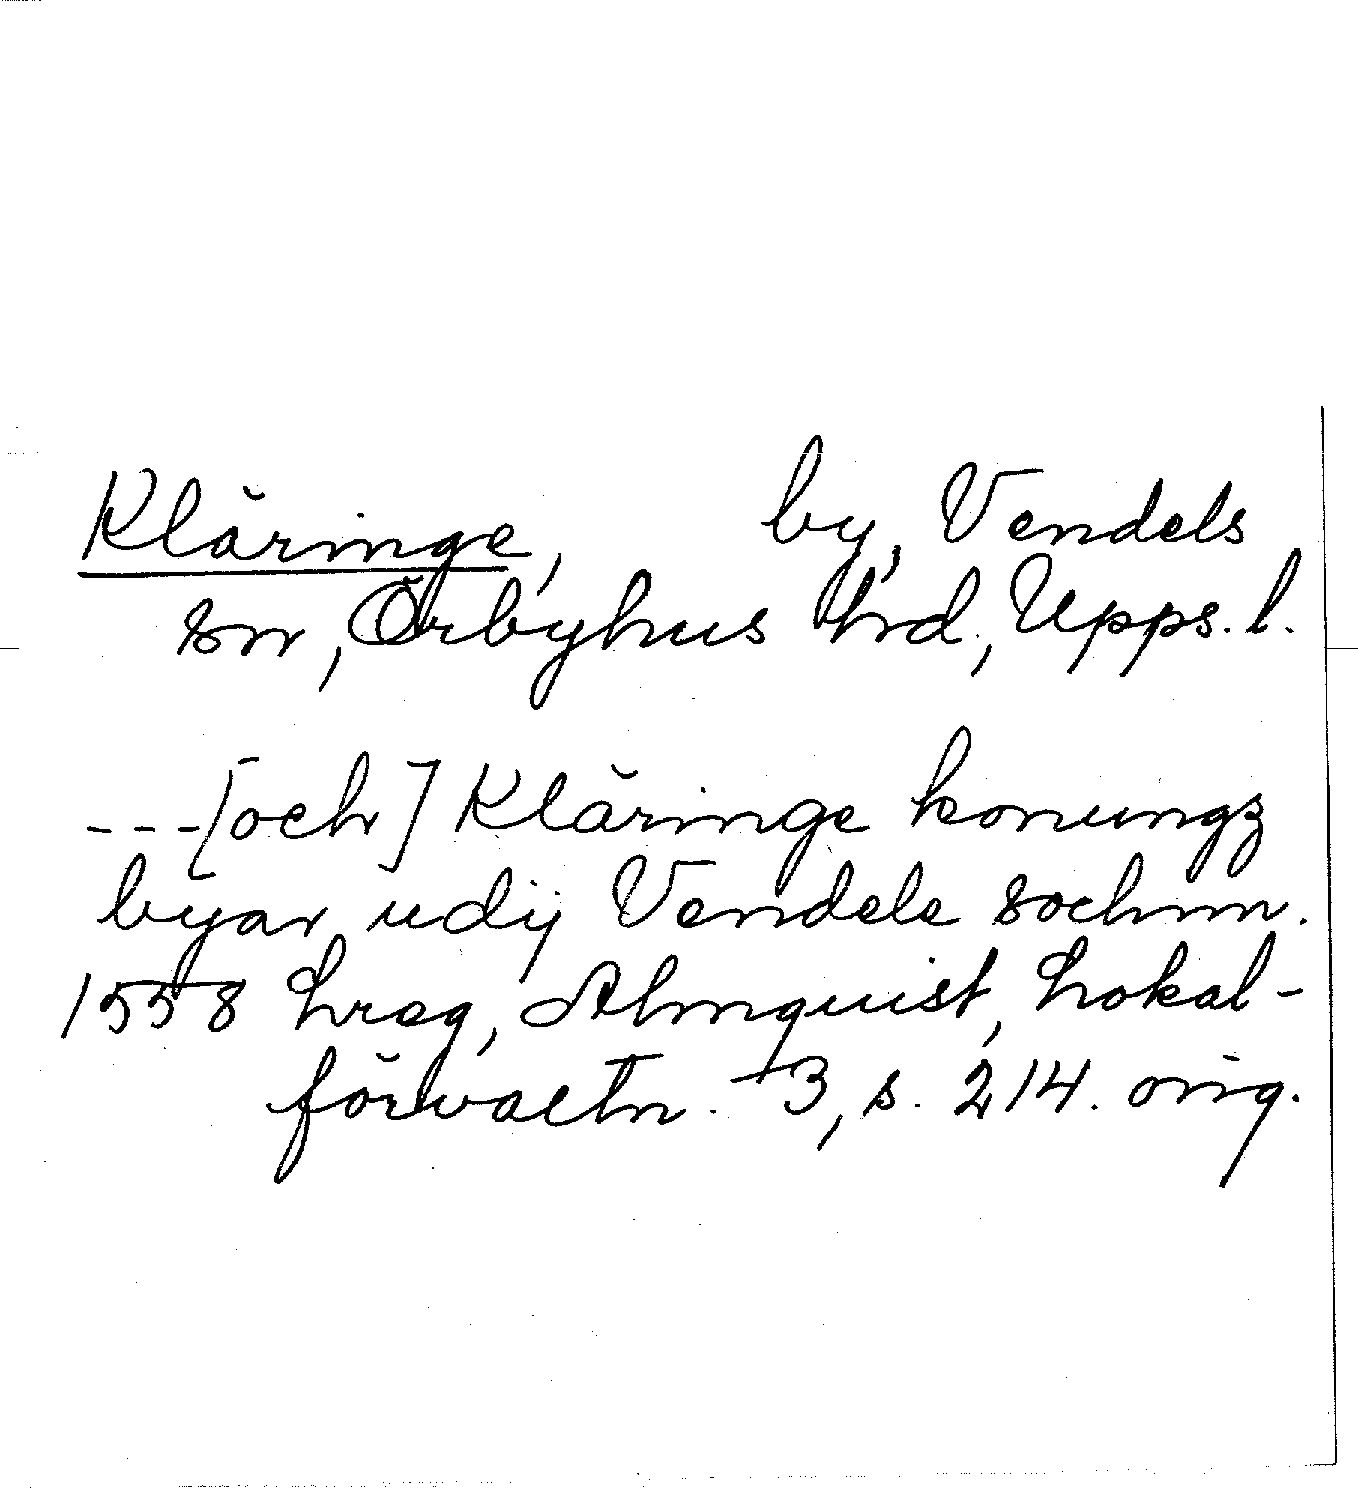 Kläringe, by, Vendels
sn, Örbyhus hd, Upps. l.
---[och] Kläringe konungz
byar udij Vendele sochnn.
1558 hreg, Almquist, Lokal-
förvaltn. 3, s. 214. orig.